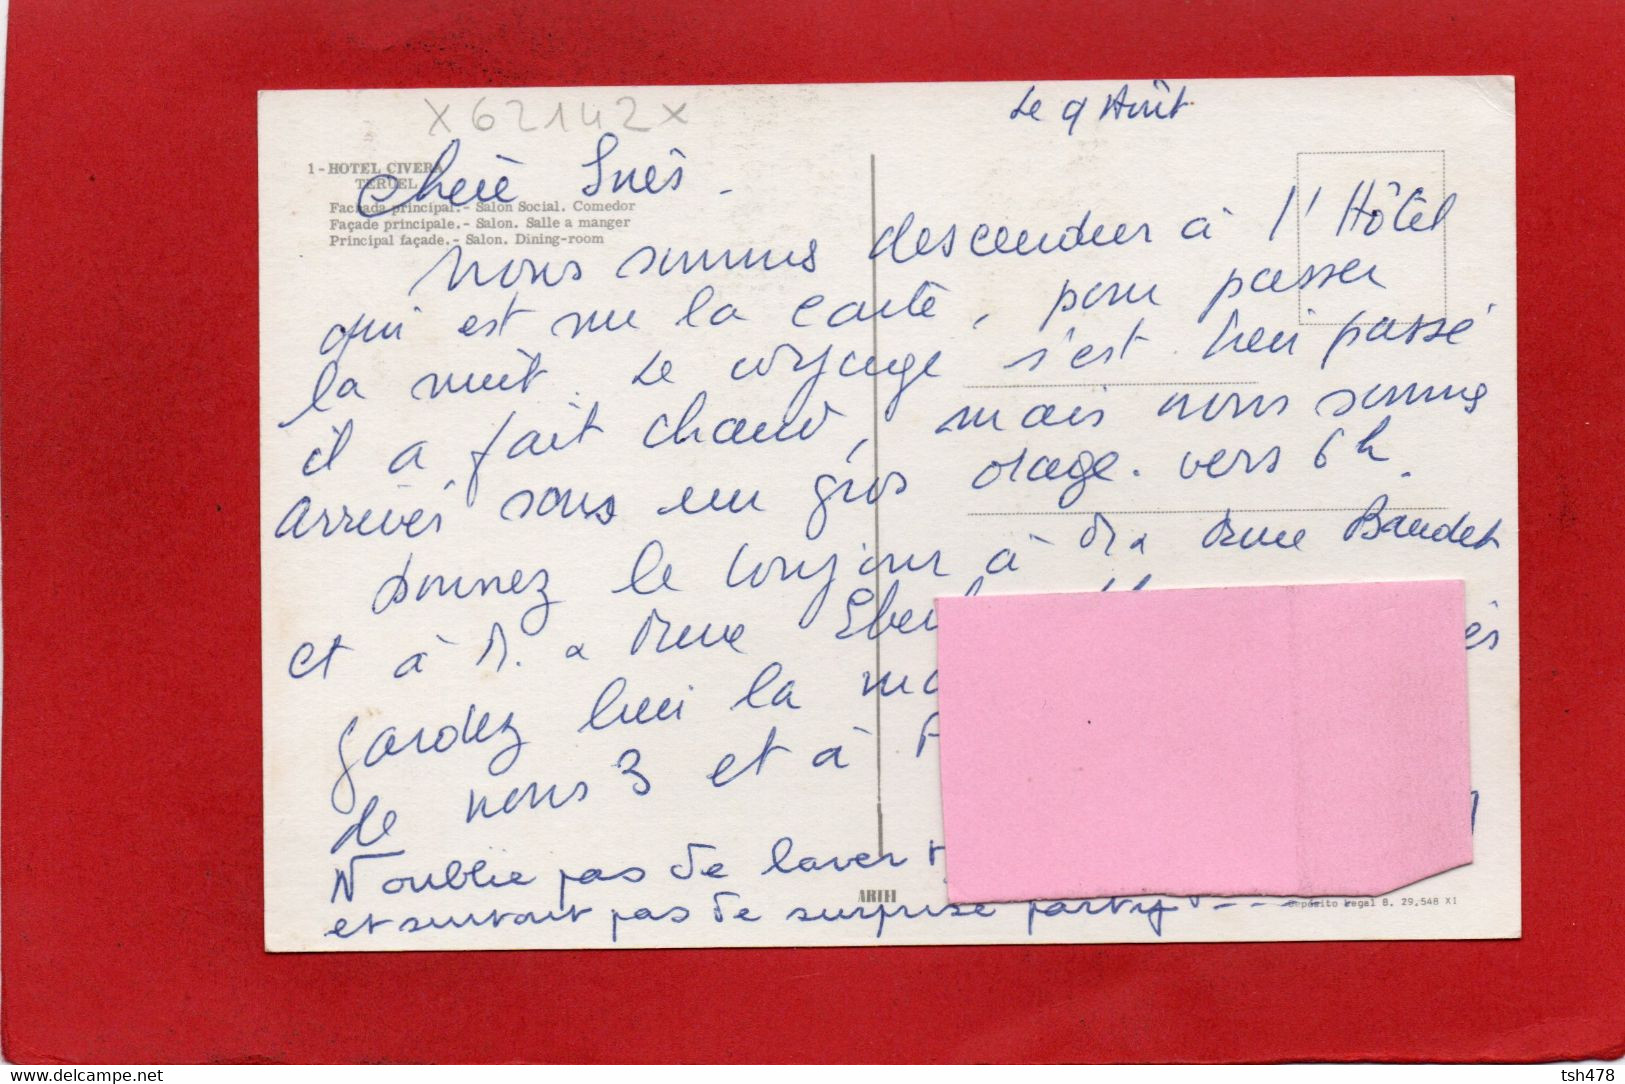 x62142x
Le 9 Août
1 - HOTEL CIVERA
TERUEL
Fachada principal.- Salon Social. Comedor
Façade principale.- Salon. Salle a manger
Principal façade.- Salon. Dining-room
Chère Inès.
Nous sommes descendus à l'Hôtel
qui est sur la carte, pour passer
la nuit. Le voyage s'est bien passé
il a fait chaud, mais nous sommes
arrivés sous un gros orage. vers 6h.
Donnez le bonjour à Mr & Mme Baudet
et à M. & Mme
gardez bien la
de nous 3 et à
N'oublie pas de laver
et surtout pas de surprise party
ARTEI
Deposito Legal B. 29.548 XI
tsh478